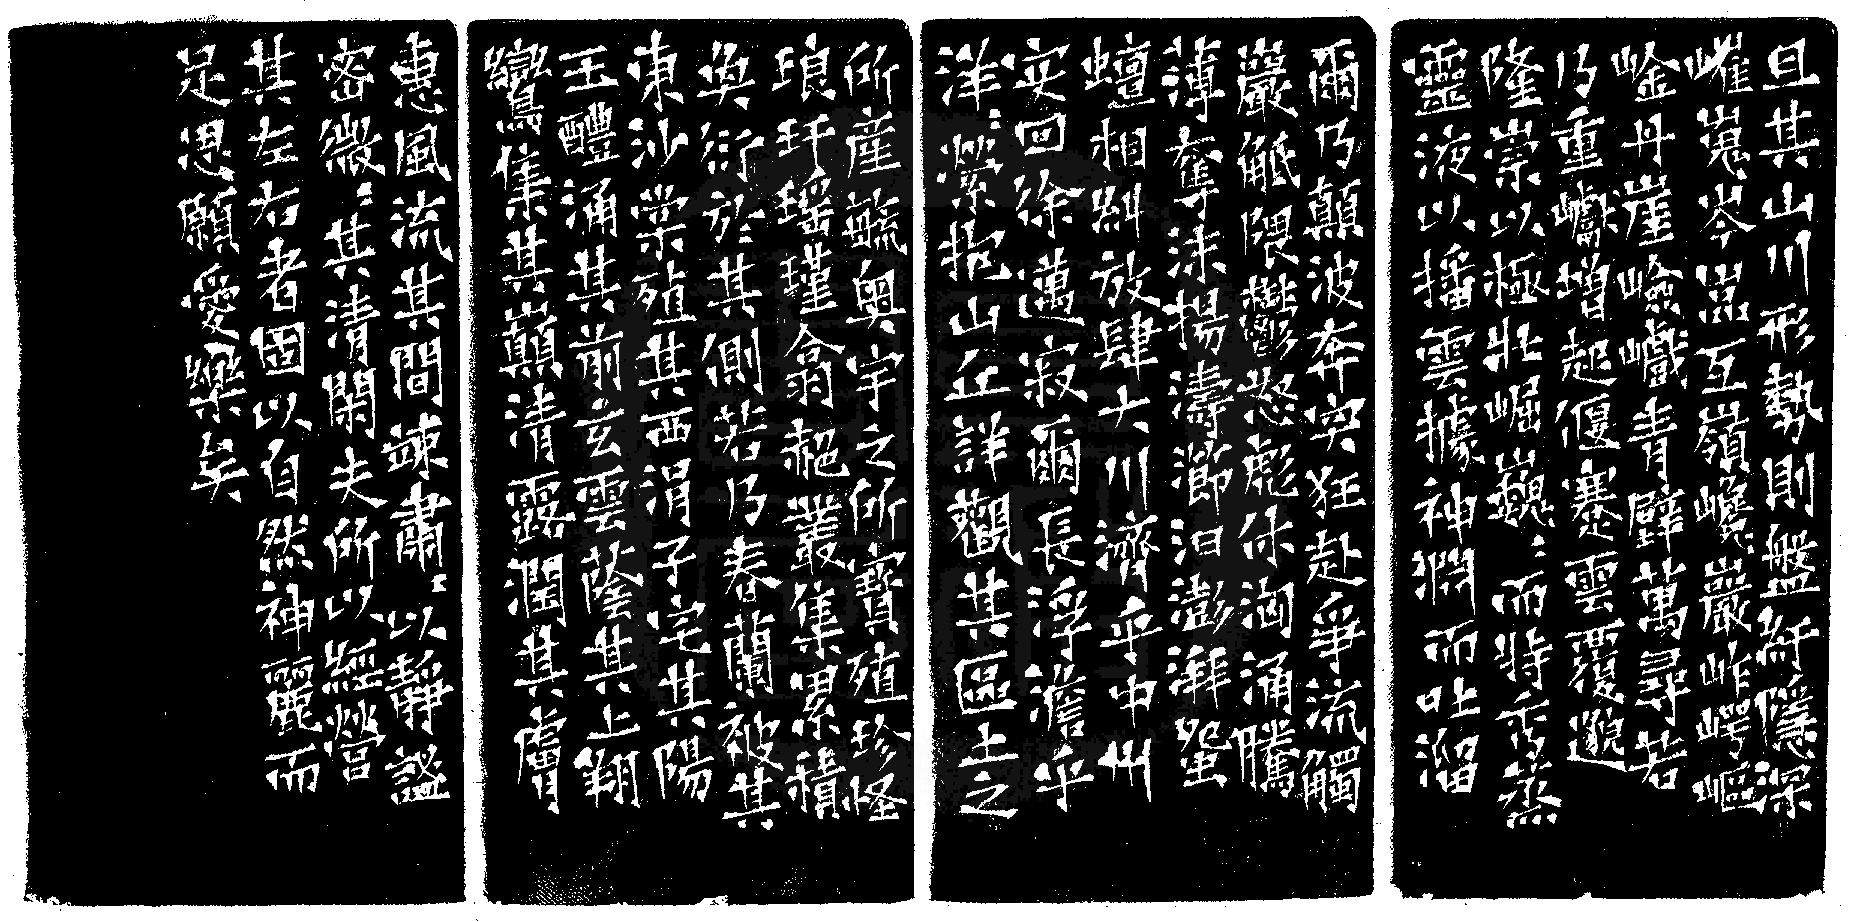 且其山川形勢則盤紆隱深
磪嵬岑嵓互嶺巉巖岞崿嶇
崟丹崖嶮巇青壁萬尋若
乃重巘增起偃蹇雲覆邈
隆崇以極壯崛巍〻而特秀蒸
靈液以播雲據神淵而吐溜
爾乃顛波奔突狂赴爭流觸
巖觝隈鬱怒彪休洶涌騰
薄奮沫揚濤瀄汩澎湃蜿
蟺相糾放肆大川濟乎中州
安回徐邁寂爾長浮澹乎
洋〻縈抱山丘詳觀其區土之
所產毓奧宇之所寶殖珍怪
琅玕瑤瑾翕赩叢集累積
奐衍於其側若乃春蘭被其
東沙棠殖其西涓子宅其陽
玉醴涌其前玄雲蔭其上翔
鸞集其巔清露潤其膚
惠風流其間竦肅〻以靜謐
密微〻其清閑夫所以經營
其左右者固以自然神麗而
足思願愛樂矣